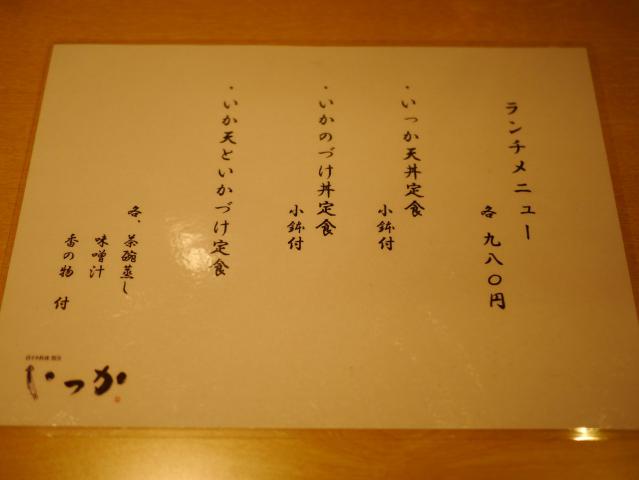 ランチメニュー
各 九八〇円
・いっか天丼定食
小鉢付
・いかのづけ丼定食
小鉢付
・いか天といかづけ定食
各、茶碗蒸し
味噌汁
香の物 付
いっか